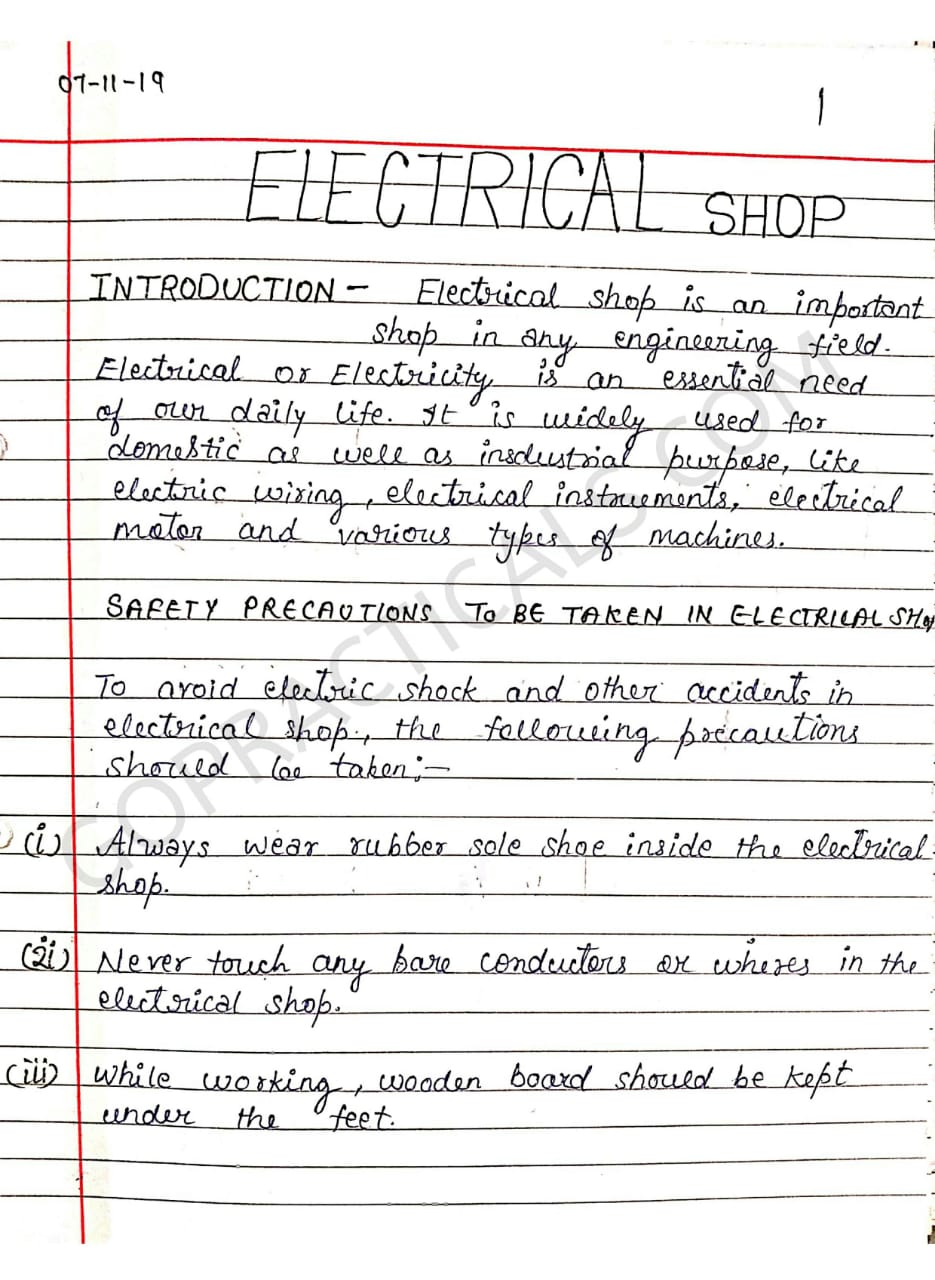 07-11-19
1
ELECTRICAL SHOP
INTRODUCTION - Electrical shop is an important
shop in any engineering field.
Electrical or Electricity is an essential need
of our daily life. It is widely used for
domestic as well as insdustrial purpose, like
electric wiring, electrical instruments, electrical
motor and various types of machines.
SAFETY PRECAUTIONS TO BE TAKEN IN ELECTRICAL SHOP
To avoid electric shock and other accidents in
electrical shop, the following precautions
should be taken:-
(i) Always wear rubber sole shoe inside the electrical
shop.
(ii) Never touch any bare conductors or wheres in the
electrical shop.
(iii) While working, wooden board should be kept
under the feet.
GOPRACTICALS.COM